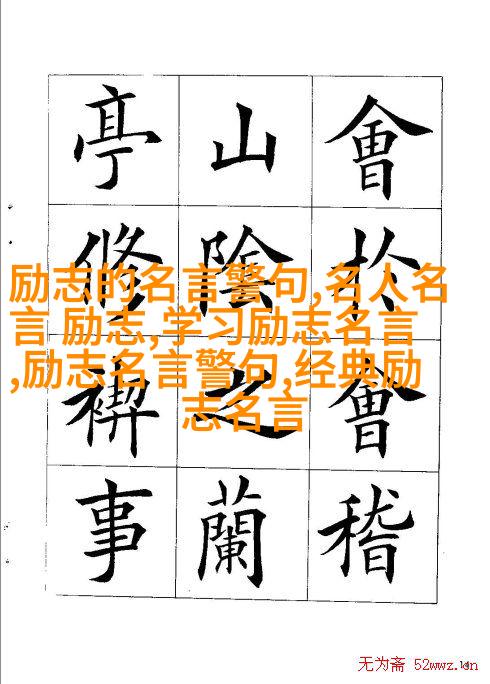 會於會稽
山陰之蘭
亭修禊事
励志的名言警句,名人名
言 励志,学习励志名言
,励志名言警句,经典励
志名言
无为斋 52wwz.cn